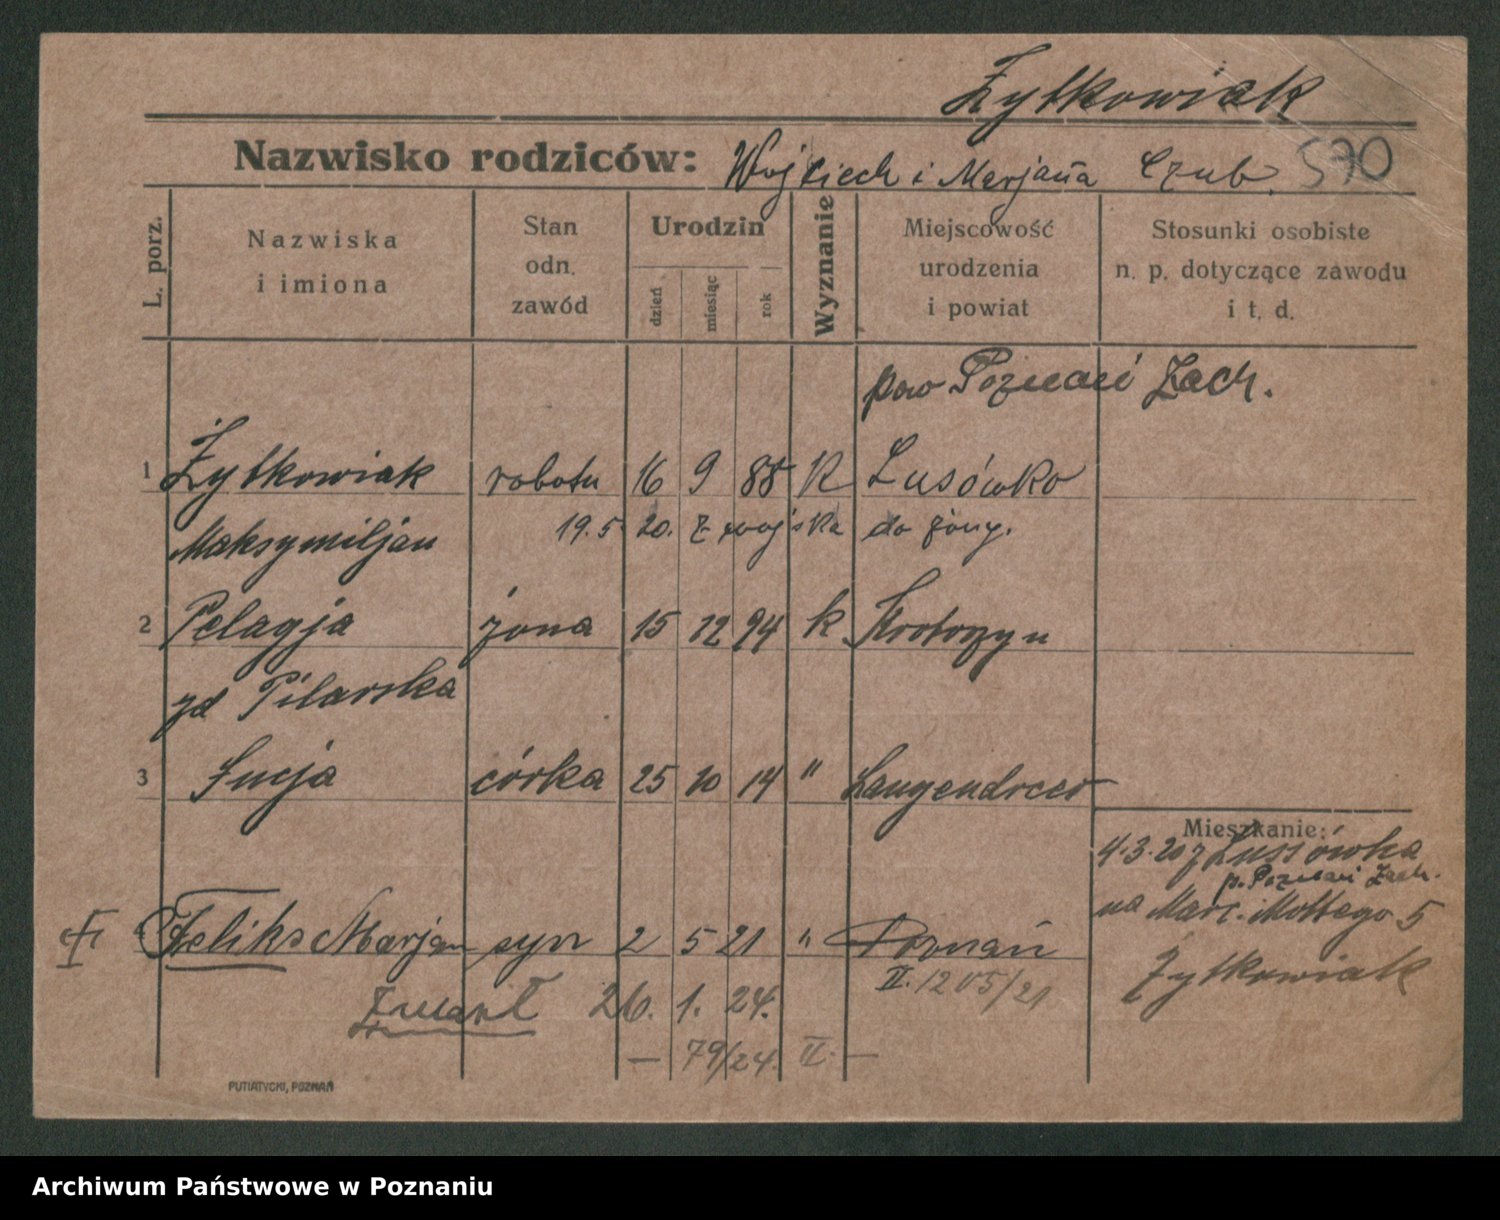 Żytkowiak
Nazwisko rodziców: Wojciech i Marjana Czub. 570
L. porz.
Nazwiska i imiona
Stan odn. zawód
Urodzin
dzień
miesiąc
rok
Wyznanie
Miejscowość urodzenia i powiat
Stosunki osobiste n. p. dotyczące zawodu i t. d.
pow Poznań Zach.
1 Żytkowiak robotn 16 9 88 K Lusówko
Maksymiljan 19.5. 20. z wojska do żony.
2 Pelagja żona 15 12 94 k Krotoszyn
zd Pilarska
3 Łucja córka 25 10 14 " Langendreer
Mieszkanie:
4.3.20 z Lussówka
p. Poznań Zach.
na Marc. Mottego 5
Żytkowiak
Feliks Marjan syn 2 5 21 " Poznań
II. 1205/21
Zmarł 26. 1. 24.
— 79/24. II. —
PUTIATYCKI, POZNAŃ
Archiwum Państwowe w Poznaniu